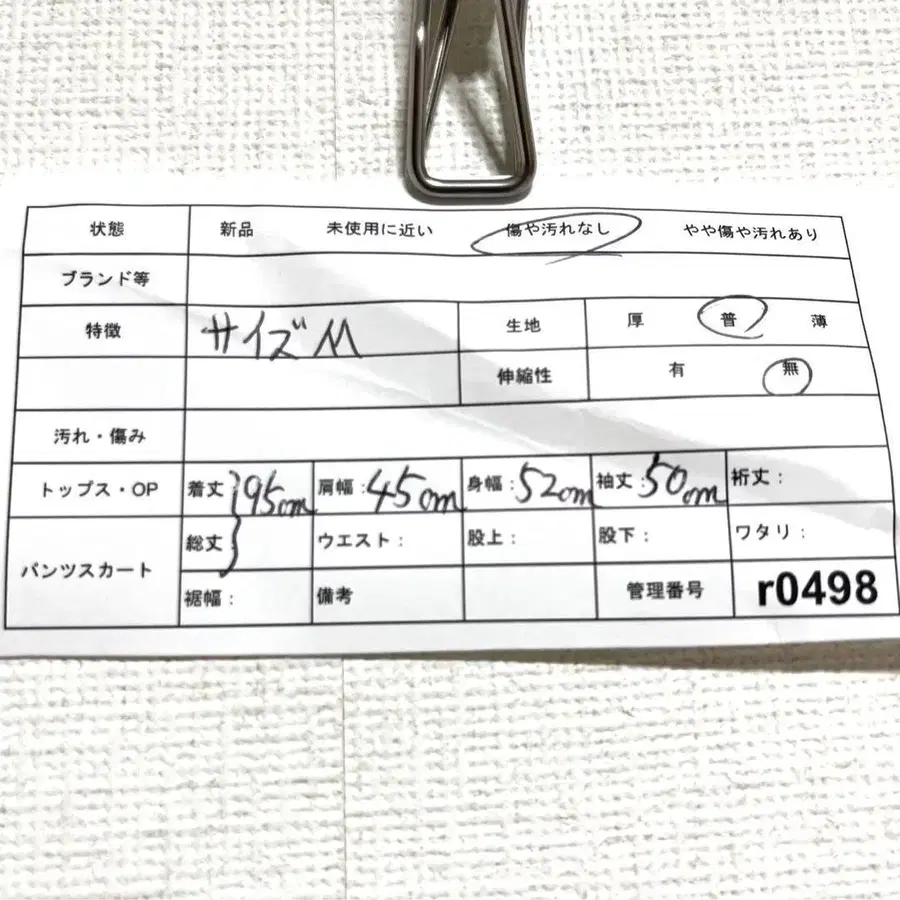 状態 新品 未使用に近い 傷や汚れなし やや傷や汚れあり
ブランド等
特徴 サイズM 生地 厚 普 薄
伸縮性 有 無
汚れ・傷み
トップス・OP 着丈 95cm 肩幅:45cm 身幅:52cm 袖丈:50cm 裄丈:
パンツスカート 総丈 ウエスト: 股上: 股下: ワタリ:
裾幅: 備考 管理番号 r0498